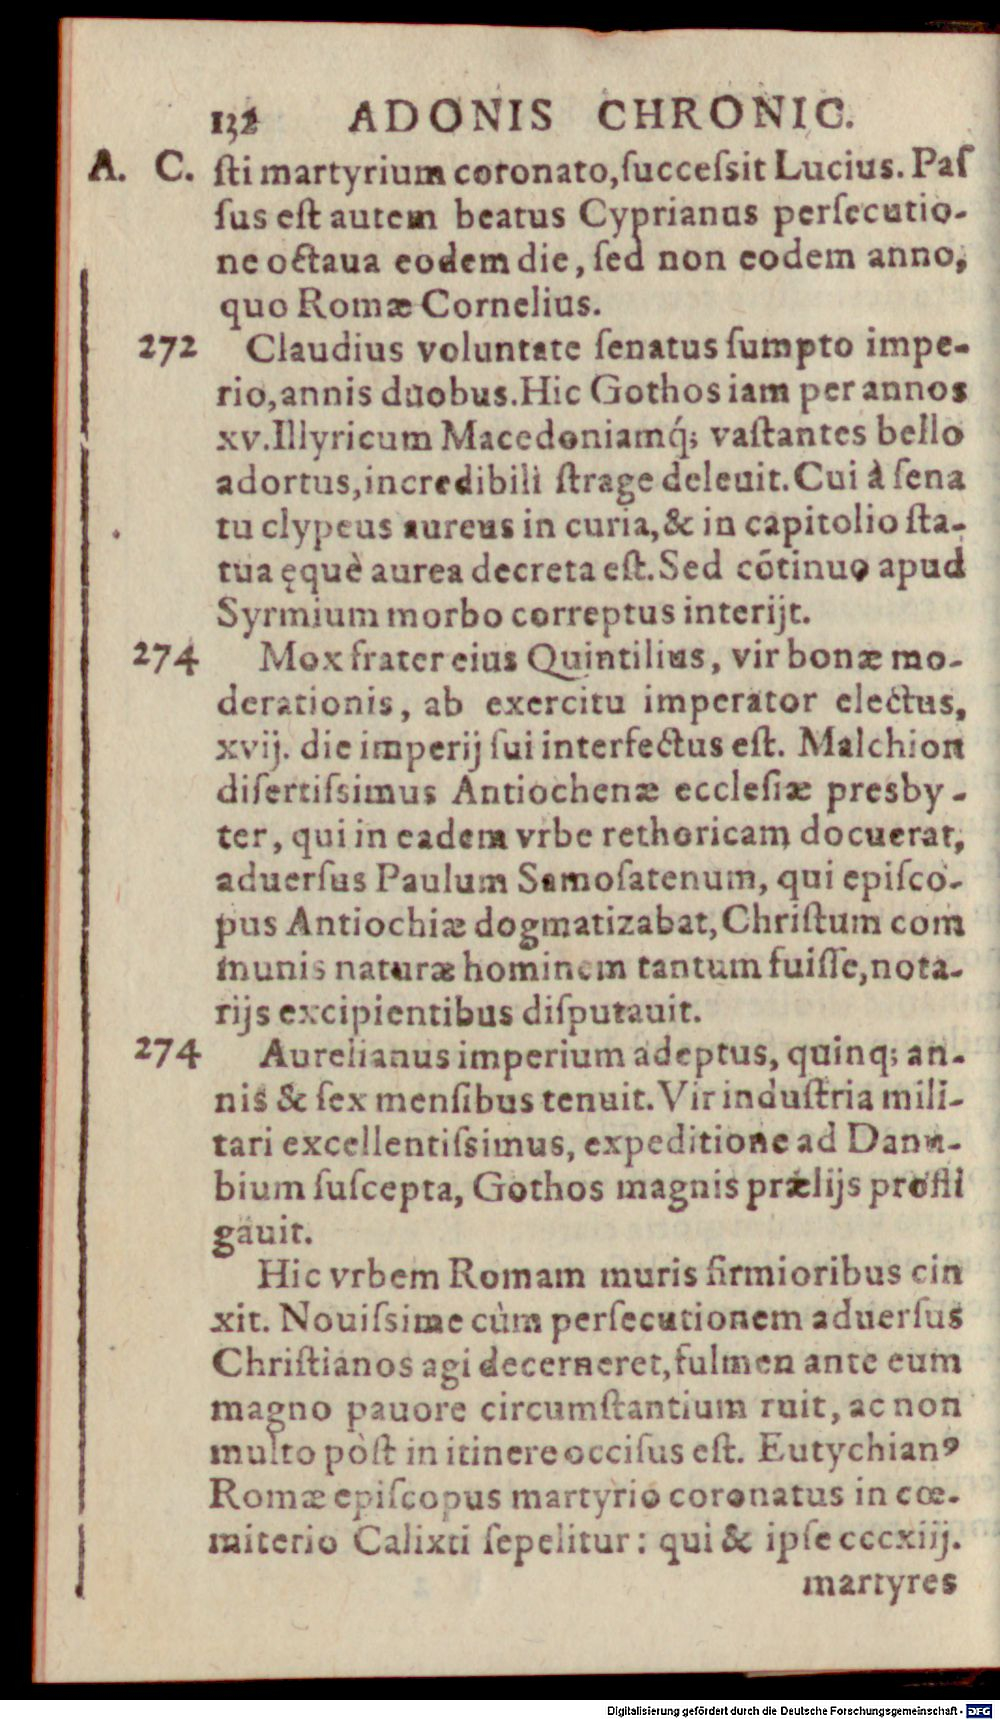 132 ADONIS CHRONIC.
A. C. ſti martyrium coronato,ſucceſsit Lucius. Paſ
ſus eſt autem beatus Cyprianus perſecutio-
ne octaua eodem die, ſed non eodem anno,
quo Romæ Cornelius.
272 Claudius voluntate ſenatus ſumpto impe-
rio,annis duobus.Hic Gothos iam per annos
xv.Illyricum Macedoniamq́; vaſtantes bello
adortus,incredibili ſtrage deleuit.Cui à ſena
tu clypeus aureus in curia,& in capitolio ſta-
tua ęquè aurea decreta eſt.Sed cõtinuo apud
Syrmium morbo correptus interijt.
274 Mox frater eius Quintilius, vir bonæ mo-
derationis, ab exercitu imperator electus,
xvij. die imperij ſui interfectus eſt. Malchion
diſertiſsimus Antiochenæ eccleſiæ presby-
ter, qui in eadem vrbe rethoricam docuerat,
aduerſus Paulum Samoſatenum, qui epiſco-
pus Antiochiæ dogmatizabat,Chriſtum com
munis naturæ hominem tantum fuiſſe,nota-
rijs excipientibus diſputauit.
274 Aurelianus imperium adeptus, quinq; an-
nis & ſex menſibus tenuit. Vir induſtria mili-
tari excellentiſsimus, expeditione ad Danu-
bium ſuſcepta, Gothos magnis prælijs profli
gauit.
Hic vrbem Romam muris firmioribus cin
xit. Nouiſsime cùm perſecutionem aduerſus
Chriſtianos agi decerneret,fulmen ante eum
magno pauore circumſtantium ruit, ac non
multo pòſt in itinere occiſus eſt. Eutychianꝰ
Romæ epiſcopus martyrio coronatus in cœ-
miterio Calixti ſepelitur: qui & ipſe cccxiij.
martyres
Digitalisierung gefördert durch die Deutsche Forschungsgemeinschaft - DFG